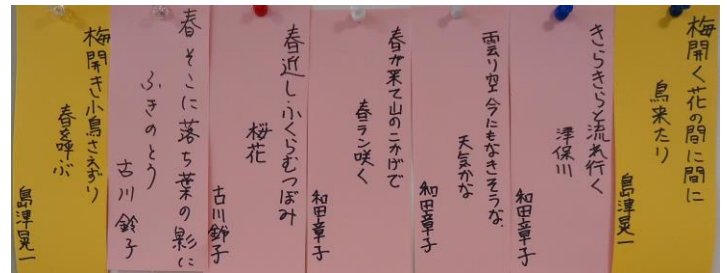 梅開く花の間に間に
鳥来たり
島津晃一
きらきらと流れ行く
澤保川
和田章子
雲り空今にもなきそうな
天気かな
和田章子
春が来て山のこかげで
春ラン咲く
和田章子
春近しふくらむつぼみ
桜花
古川鈴子
春そこに落ち葉の影に
ふきのとう
古川鈴子
梅開き小鳥さえずり
春を呼ぶ
島津晃一